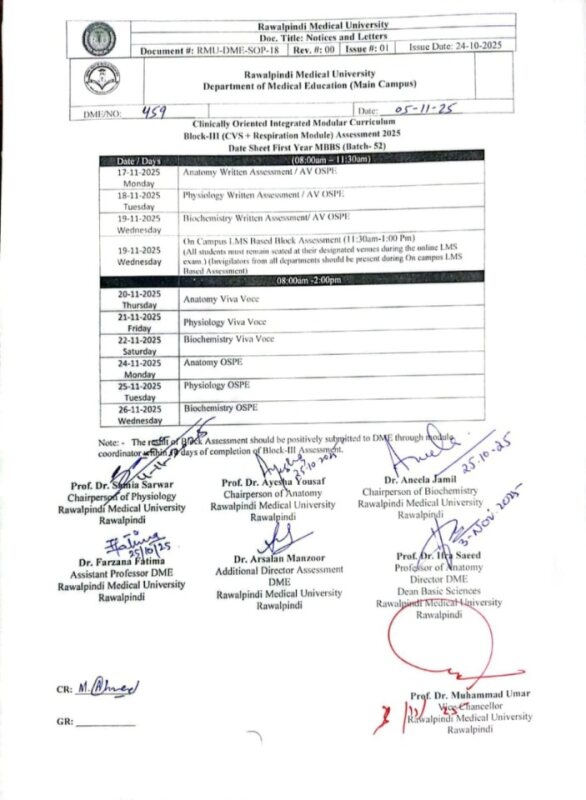 Rawalpindi Medical University
Doc. Title: Notices and Letters
Document #: RMU-DME-SOP-18 Rev. #: 00 Issue #: 01 Issue Date: 24-10-2025
Rawalpindi Medical University
Department of Medical Education (Main Campus)
DME/NO: 459 Date: 05-11-25
Clinically Oriented Integrated Modular Curriculum
Block-III (CVS + Respiration Module) Assessment 2025
Date Sheet First Year MBBS (Batch- 52)
Date / Days (08:00am – 11:30am)
17-11-2025 Anatomy Written Assessment / AV OSPE
Monday
18-11-2025 Physiology Written Assessment / AV OSPE
Tuesday
19-11-2025 Biochemistry Written Assessment/ AV OSPE
Wednesday
On Campus LMS Based Block Assessment (11:30am-1:00 Pm)
19-11-2025 (All students must remain seated at their designated venues during the online LMS
Wednesday exam.) (Invigilators from all departments should be present during On campus LMS
Based Assessment)
08:00am -2:00pm
20-11-2025 Anatomy Viva Voce
Thursday
21-11-2025 Physiology Viva Voce
Friday
22-11-2025 Biochemistry Viva Voce
Saturday
24-11-2025 Anatomy OSPE
Monday
25-11-2025 Physiology OSPE
Tuesday
26-11-2025 Biochemistry OSPE
Wednesday
Note: - The result of Block Assessment should be positively submitted to DME through module
coordinator within days of completion of Block-III Assessment.
Ayesha 25.10.2025
Aneela 25.10-25
Prof. Dr. Samia Sarwar Prof. Dr. Ayesha Yousaf Dr. Aneela Jamil
Chairperson of Physiology Chairperson of Anatomy Chairperson of Biochemistry
Rawalpindi Medical University Rawalpindi Medical University Rawalpindi Medical University
Rawalpindi Rawalpindi Rawalpindi
Fatima 25/10/25
3-Nov.2025
Dr. Farzana Fatima Dr. Arsalan Manzoor Prof. Dr. Ifra Saeed
Assistant Professor DME Additional Director Assessment Professor of Anatomy
Rawalpindi Medical University DME Director DME
Rawalpindi Rawalpindi Medical University Dean Basic Sciences
Rawalpindi Rawalpindi Medical University
Rawalpindi
CR: M. Ahmed
Prof. Dr. Muhammad Umar
Vice Chancellor
GR: Rawalpindi Medical University
Rawalpindi